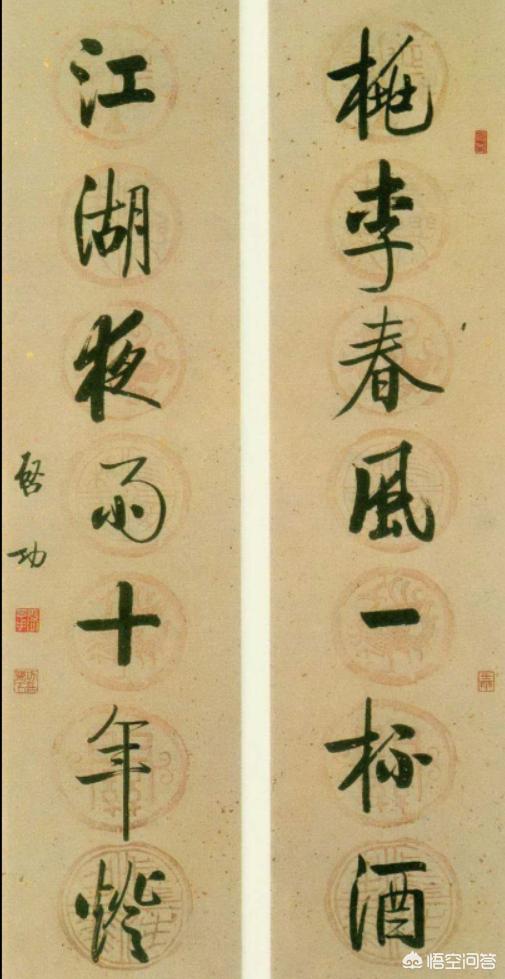 桃李春风一杯酒
江湖夜雨十年灯
启功
悟空问答